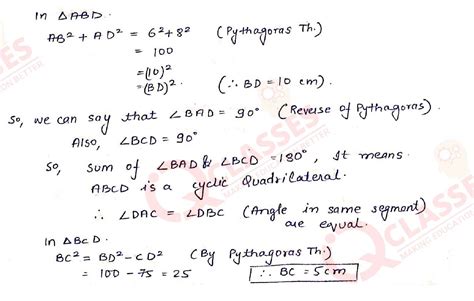 In △ABD.
AB² + AD² = 6² + 8² (Pythagoras Th.)
= 100
= (10)²
= (BD)². (∴ BD = 10 cm).
So, we can say that ∠BAD = 90° (Reverse of Pythagoras)
Also, ∠BCD = 90°
So, sum of ∠BAD & ∠BCD = 180°, It means
ABCD is a cyclic Quadrilateral.
∴ ∠DAC = ∠DBC (Angle in same segment)
are equal.
In △BCD.
BC² = BD² - CD² (By Pythagoras Th.)
= 100 - 75 = 25 ∴ BC = 5cm
CLASSES
MAKING EDUCATION BETTER